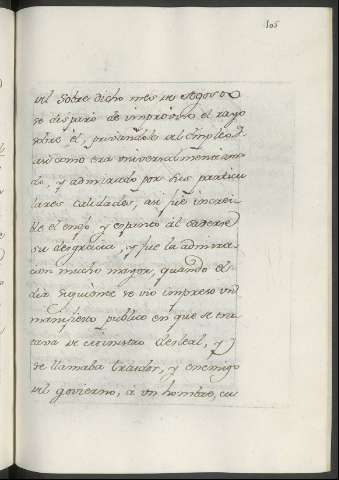 105
del sobre dicho mes de Agosto
se disparò de improviso el rayo
sobre èl, privandole del Empleo
asi como era universalmente ama
do, y admirado por sus particu
lares calidades, asi fue increi
ble el enojo y espanto al saverse
su desgracia, y fue la admira
cion mucho mayor, quando el
dia siguiente se vio impreso un
manifiesto publico en que se tra
tava de ministro desleal, y
se llamaba traidor, y enemigo
del govierno, à un hombre, cu